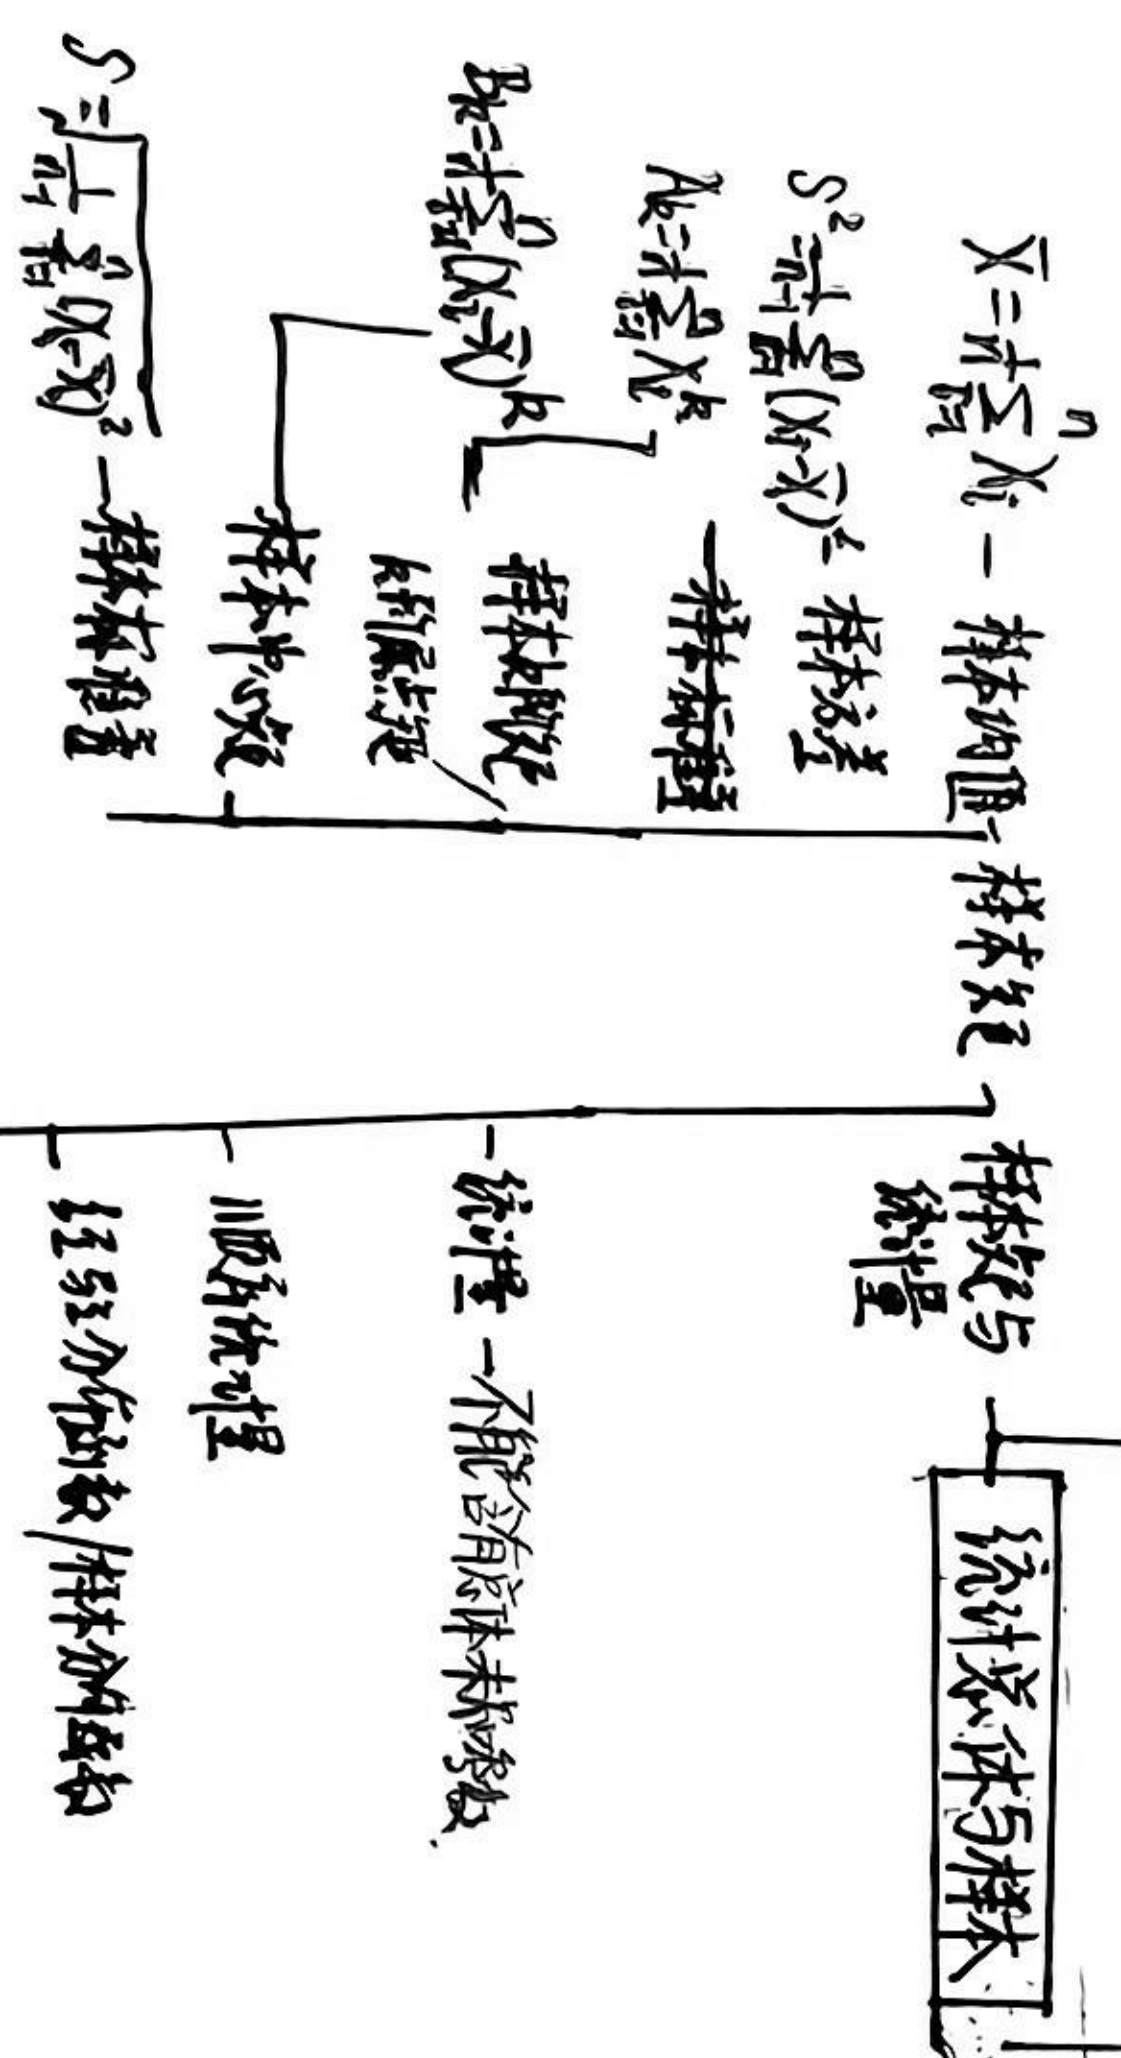 X̄ = 1/n ∑_{i=1}^{n} X_i — 样本均值
样本矩
样本矩与
统计量
统计总体与样本
S² = 1/(n-1) ∑_{i=1}^{n} (X_i - X̄)²
样本方差
样本标准差
A_k = 1/n ∑_{i=1}^{n} X_i^k
样本k阶矩
k阶原点矩
B_k = 1/n ∑_{i=1}^{n} (X_i - X̄)^k
样本中心矩
S = √(1/(n-1) ∑_{i=1}^{n} (X_i - X̄)²) — 样本标准差
统计量 — 不能含有总体未知参数.
顺序统计量
经验分布函数/样本分布函数